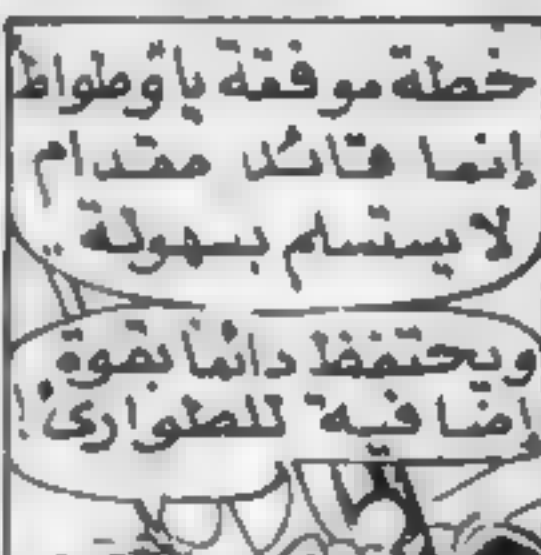 خطة موفقة ياوطواط
إنما قائد مقدام
لا يستسلم بسهولة ..
ويحتفظ دائماً بقوة
إضافية للطوارئ !